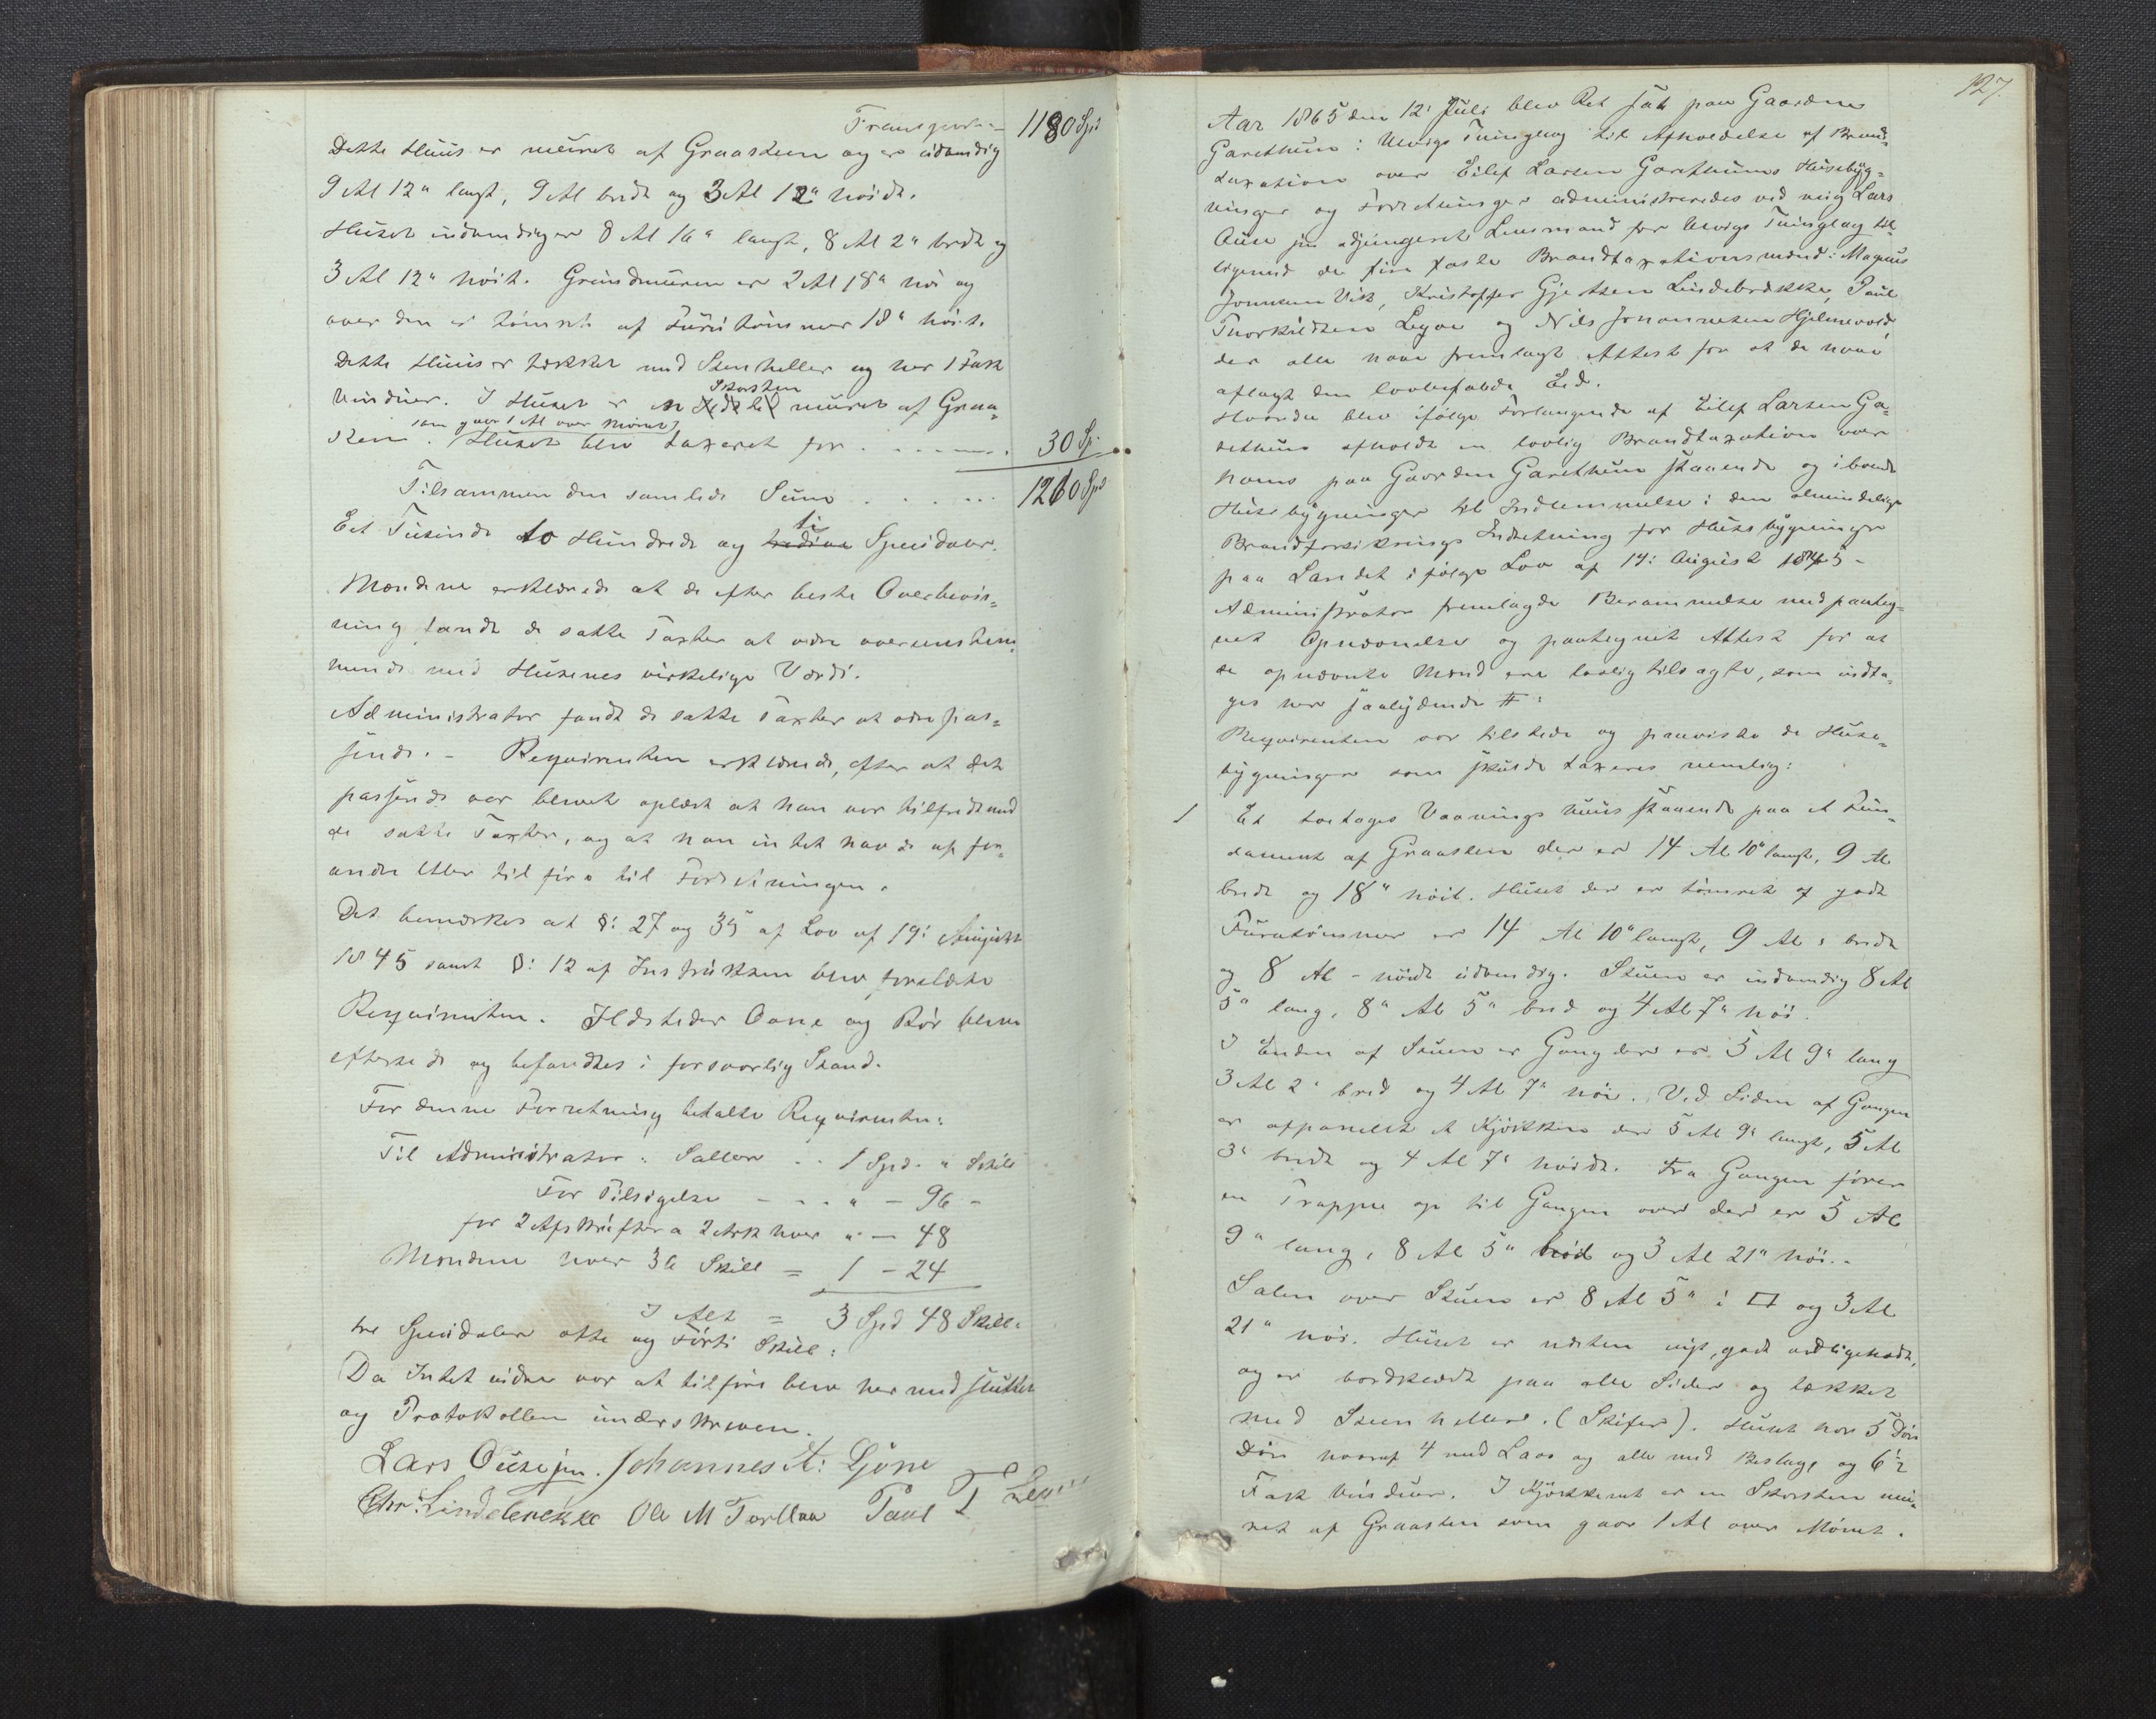 Transport 1180 Spd
Dette Huus er muret af Graasteen og er udvendig
9 Al 12" langt, 9 Al bredt og 3 Al 12" høidt.
Huset indvendig er 8 Al 16" langt, 8 Al 2" bredt og
3 Al 12" høit. Grundmuren er 2 Al 18" høi og
over den er tømret af Furu tømmer 18" høit.
Dette Huus er tækket med Steenheller og har 1 Fak
Vinduer. I Huset er en Skorsten muret af Graa-
som gaar 1 Al over Mønet
sten. Huset blev taxeret for . . . . . . 30 Sp
Tilsammen den samlede Sum . . . . . 1210 Spd
Eet Tusinde to Hundrede og ti Speidaler.
Mændene erklærede at de efter beste Overbeviis-
ning fandt de satte Taxter at være overeenstem-
mende med Husenes virkelige Værdi.
Administrator fandt de satte Taxter at være pas-
sende. - Requirenten erklærede, efter at det
passerede var blevet oplæst at han var tilfreds med
de satte Taxter, og at han intet havde at for-
andre eller tilføre til Forretningen.
Det bemærkes at §: 27 og 35 af Lov af 19: August
1845 samt §: 12 af Instruksen blev forelæst
Requirenten. Ildsteder Ovne og Rør blev
efterseede og befandtes i forsvarlig Stand.
For denne Forretning betalte Requirenten:
Til Administrator: Sallær . . 1 Spd. " Skill
For Tilsigelse - . . " - 96 -
for 2 Afskrifter a 2 Ark hver " - 48
Mændene hver 36 Skill = 1 - 24
I Alt = 3 Spd 48 Skill:
tre Speidaler otte og Førti Skill:
Da Intet videre var at tilføre blev hermed sluttet
og Protokollen underskreven.
Lars Ouse jun. Johannes A: Djøne
Chr: Lindebrække Ole M Torblaa Paul T Legre
127.
Aar 1865 den 12: Juli blev Ret sat paa Gaarden
Garethun i Ulvigs Thinglag til Afholdelse af Brand-
taxation over Eilef Larsen Garethuns Husebyg-
ninger og Forretningen administreredes ved mig Lars
Ouse jun adjungeret Lensmand for Ulvigs Thinglag til-
ligemed de fire faste Brandtaxationsmænd: Magnus
Jonnsen Vik, Kristoffer Gjertsen Lindebrække, Paul
Thorkildsen Legre og Nils Johannesen Hjelmevold,
der alle have fremlagt Attest for at de have
aflagt den lovbefalede Eed.
Hvorda blev ifølge Forlangende af Eilef Larsen Ga-
rethun afholdt en lovlig Brandtaxation over
hans paa Gaarden Garethun staaende og iboende
Husebygninger til Indlemmelse i den almindelige
Brandforsikrings Indretning for Husebygninger
paa Landet i følge Lov af 19: August 1845 -
Administrator fremlagde Berammelse med paateg-
net Opnævnelse og paategnet Attest for at
de opnævnte Mænd ere lovlig tilsagte, som indta-
ges her saalydende #:
Requirenten var tilstede og paaviste de Huse-
bygninger som skulde taxeres nemlig:
1 Et toetages Vaaningshuus staaende paa et Fun-
dament af Graasten der er 14 Al 10" langt, 9 Al
bredt og 18" høit. Huset der er tømret af godt
Furutømmer er 14 Al 10" langt, 9 Al: bredt
og 8 Al - høidt udvendig. Stuen er indvendig 8 Al
5" lang, 8" Al 5" bred og 4 Al 7" høi.
I Enden af Stuen er Gang der er 5 Al 9" lang
3 Al 2" bred og 4 Al 7" høi. Ved Siden af Gangen
er afpanelet et Kjøkken der 5 Al 9" langt, 5 Al
3" bredt og 4 Al 7" høidt. Fra Gangen fører
en Trappe op til Gangen over der er 5 Al
9" lang, 8 Al 5" bred og 3 Al 21" høi. -
Salen over Stuen er 8 Al 5" i □ og 3 Al
21" høi. Huset er næsten nyt, godt vedligeholdt,
og er bordklædt paa alle Sider og tækket
med Steenheller. (Skifer). Huset har 5 Døre
Døre hvoraf 4 med Laas og alle med Beslag, og 6 1/2
Fag Vinduer. I Kjøkkenet er en Skorsten mu-
ret af Graasten som gaar 1 Al over Mønet.